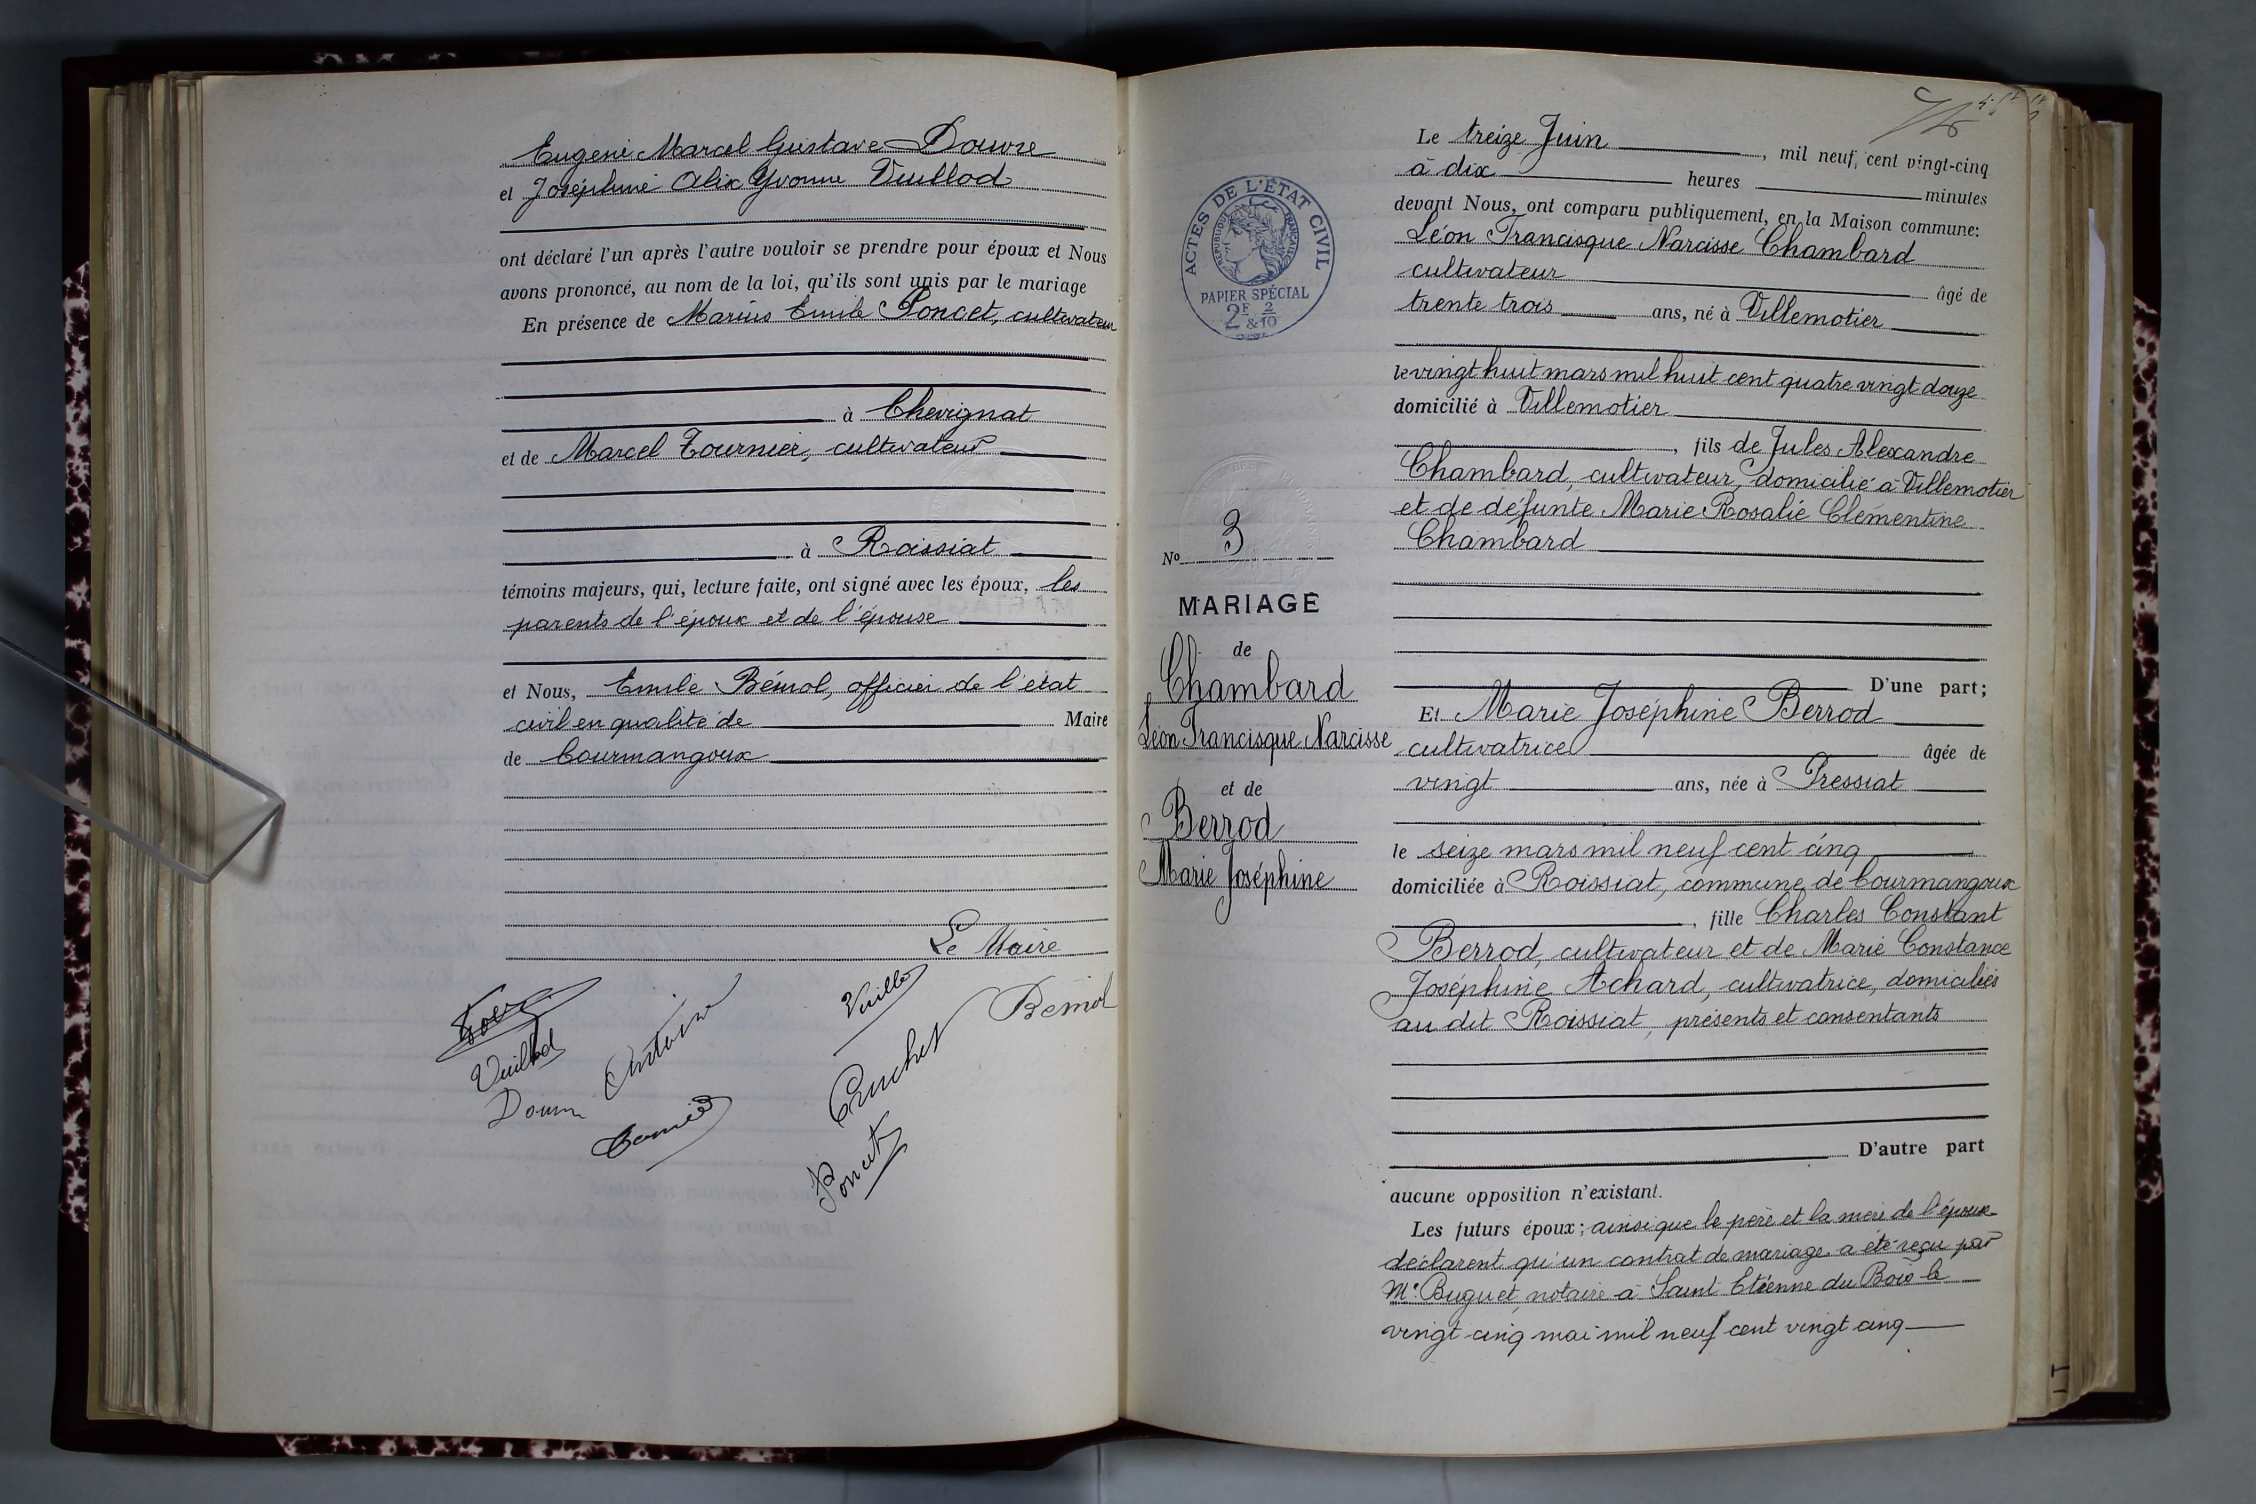 Eugène Marcel Gustave Douvre
et Joséphine Alix Yvonne Vuillod
ont déclaré l'un après l'autre vouloir se prendre pour époux et Nous
avons prononcé, au nom de la loi, qu'ils sont unis par le mariage
En présence de Marius Emile Poncet, cultivateur
à Chevignat
et de Marcel Tournier, cultivateur
à Roissiat
témoins majeurs, qui, lecture faite, ont signé avec les époux, les
parents de l'époux et de l'épouse
et Nous, Emile Bémol, officier de l'état
civil en qualité de Maire
de Courmangoux
Le Maire
Vuillod
Bémol
Vuillod
Douvre
Antoine
Cruchet
Poncet
ACTES DE L'ÉTAT CIVIL
RÉPUBLIQUE FRANÇAISE
PAPIER SPÉCIAL
2F & 2/10
No 3
MARIAGE
de
Chambard
Léon Francisque Narcisse
et de
Berrod
Marie Joséphine
Le treize Juin, mil neuf cent vingt-cinq
à dix heures minutes
devant Nous, ont comparu publiquement, en la Maison commune:
Léon Francisque Narcisse Chambard
cultivateur âgé de
trente trois ans, né à Villemotier
le vingt huit mars mil huit cent quatre vingt douze
domicilié à Villemotier
, fils de Jules Alexandre
Chambard, cultivateur, domicilié à Villemotier
et de défunte Marie Rosalie Clémentine
Chambard
D'une part;
Et Marie Joséphine Berrod
cultivatrice âgée de
vingt ans, née à Pressiat
le seize mars mil neuf cent cinq
domiciliée à Roissiat, commune de Courmangoux
, fille Charles Constant
Berrod, cultivateur et de Marie Constance
Joséphine Achard, cultivatrice, domiciliés
au dit Roissiat, présents et consentants
D'autre part
aucune opposition n'existant.
Les futurs époux; ainsi que le père et la mère de l'épouse
déclarent qu'un contrat de mariage a été reçu par
Me Buguet, notaire à Saint Etienne du Bois le
vingt-cinq mai mil neuf cent vingt cinq